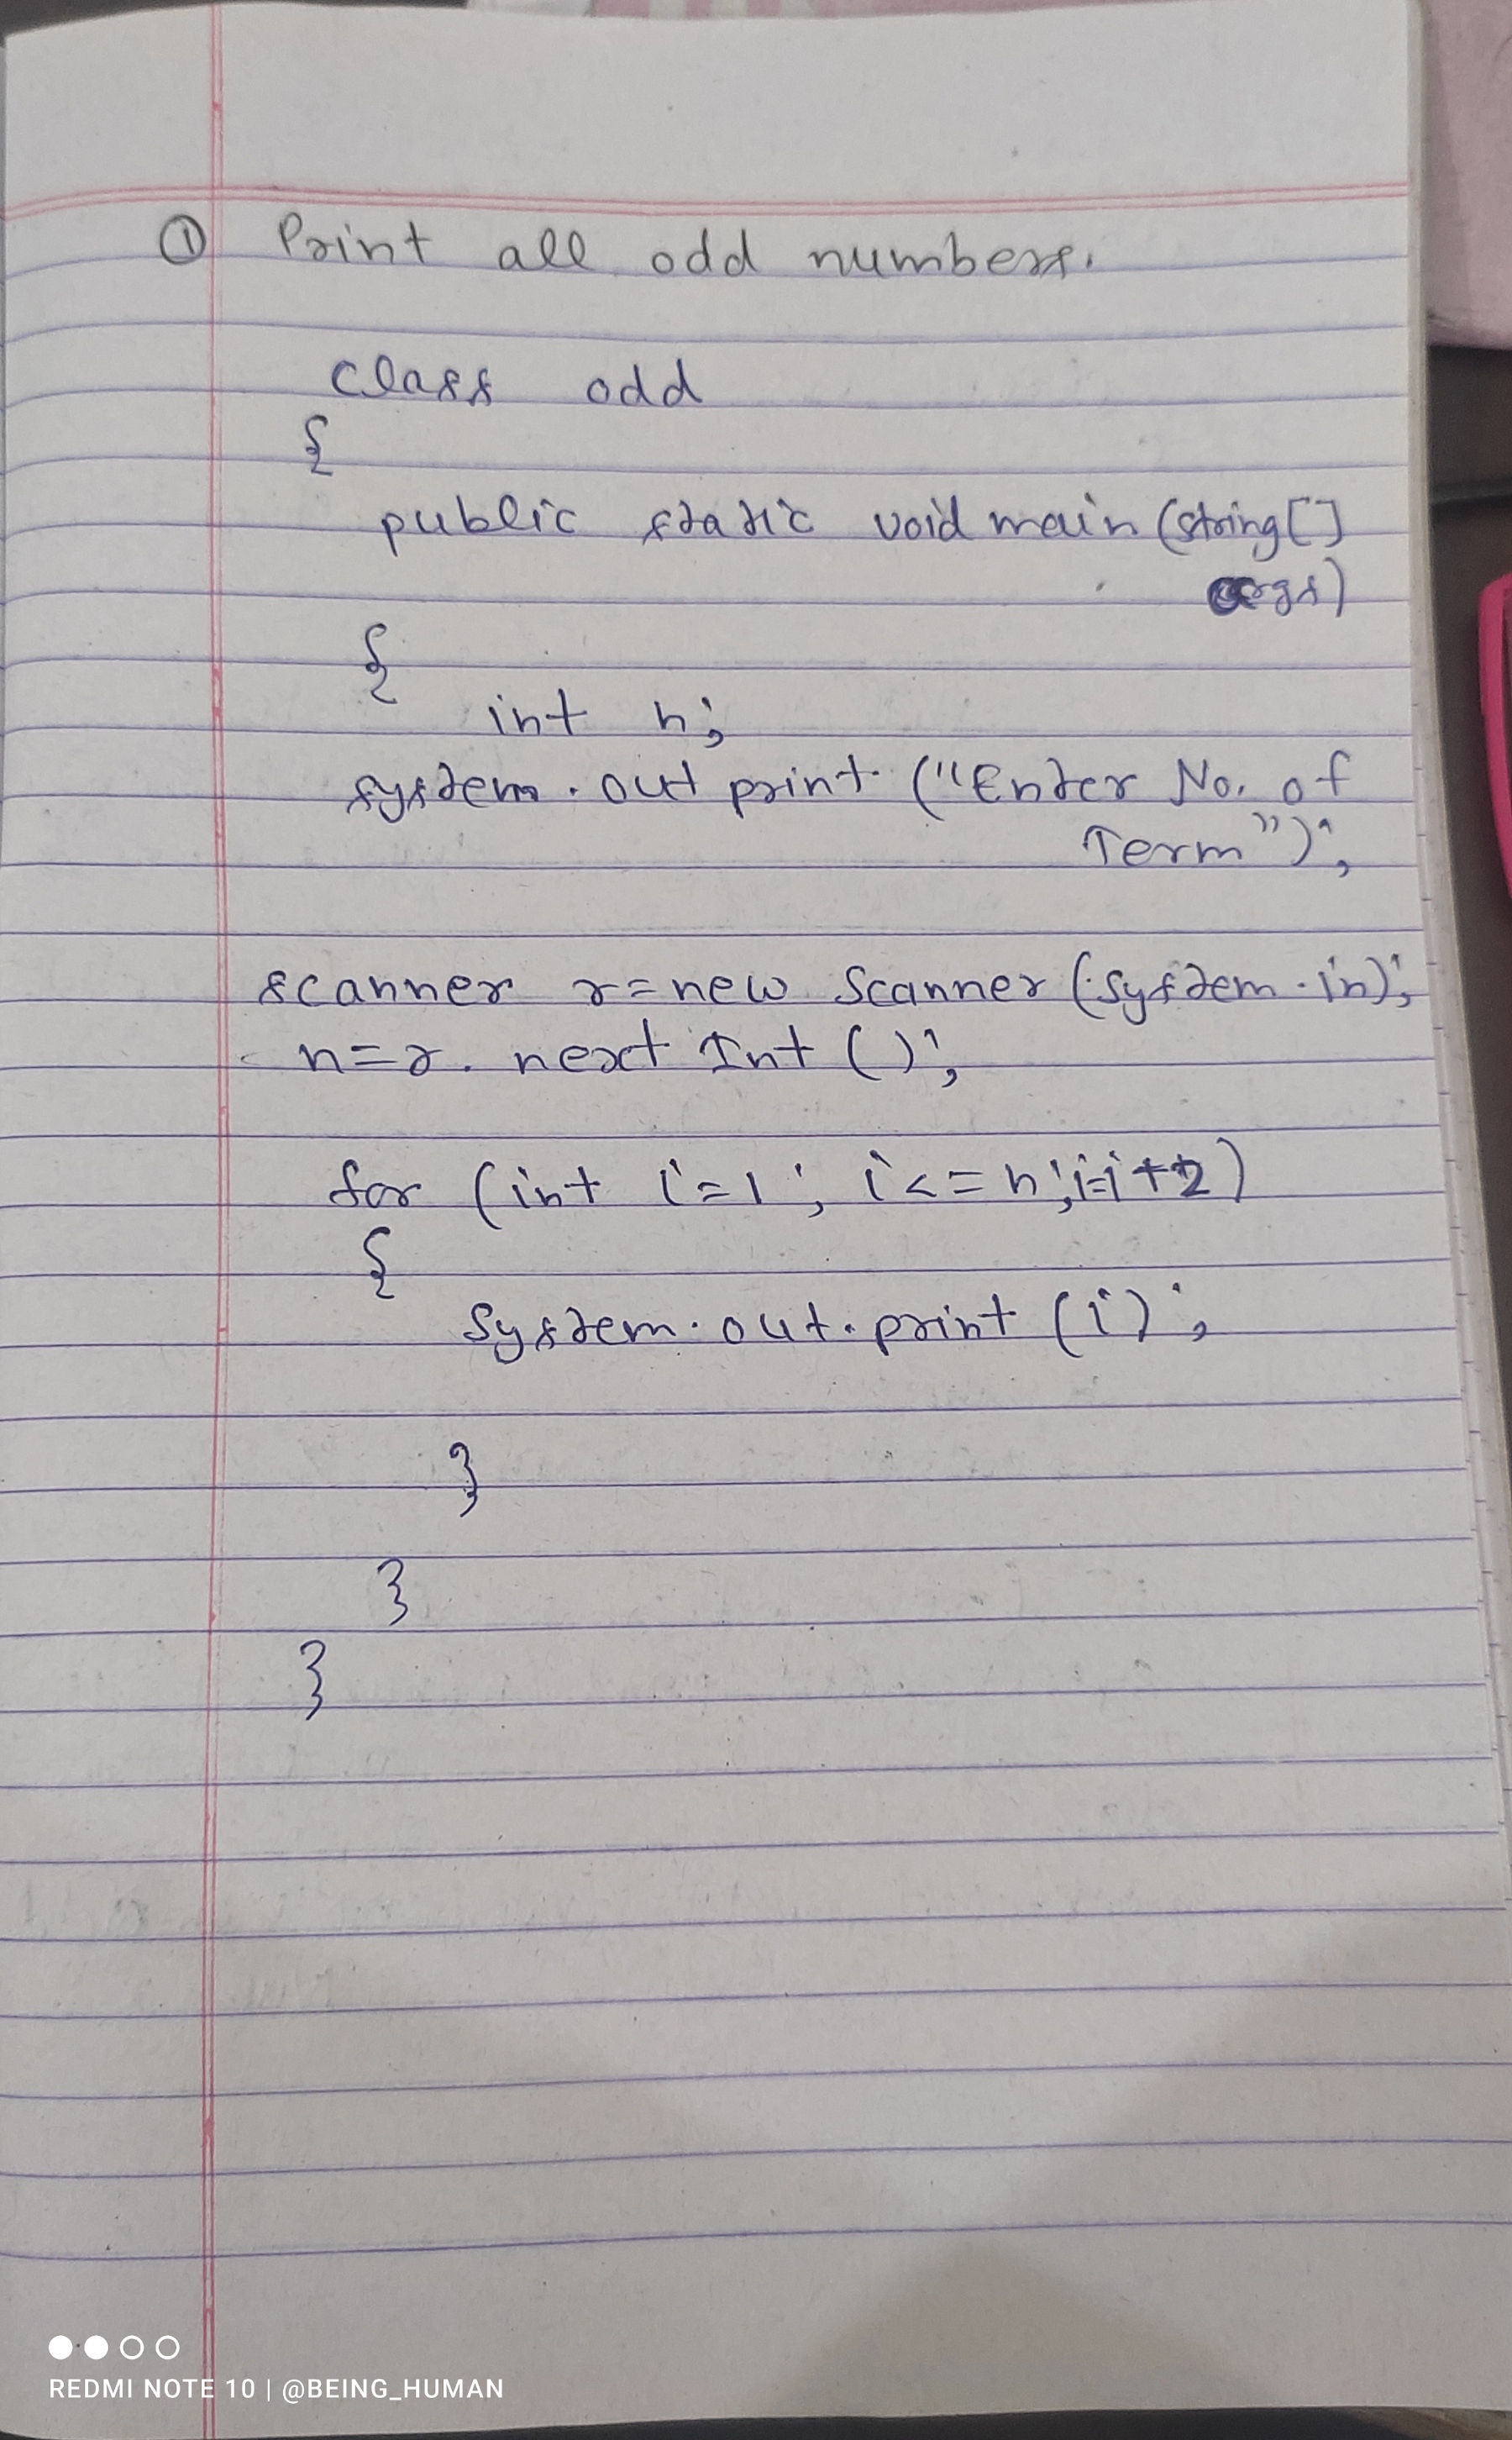 ① Print all odd numbers.
class odd
{
public static void main (string []
args)
{
int n;
system . out print ("Enter No. of
Term");
scanner r = new Scanner (system . in);
n = r . next Int ( );
for (int i = 1 ; i <= n ; i=i+2)
{
System . out . print (i) ;
}
}
}
REDMI NOTE 10 | @BEING_HUMAN